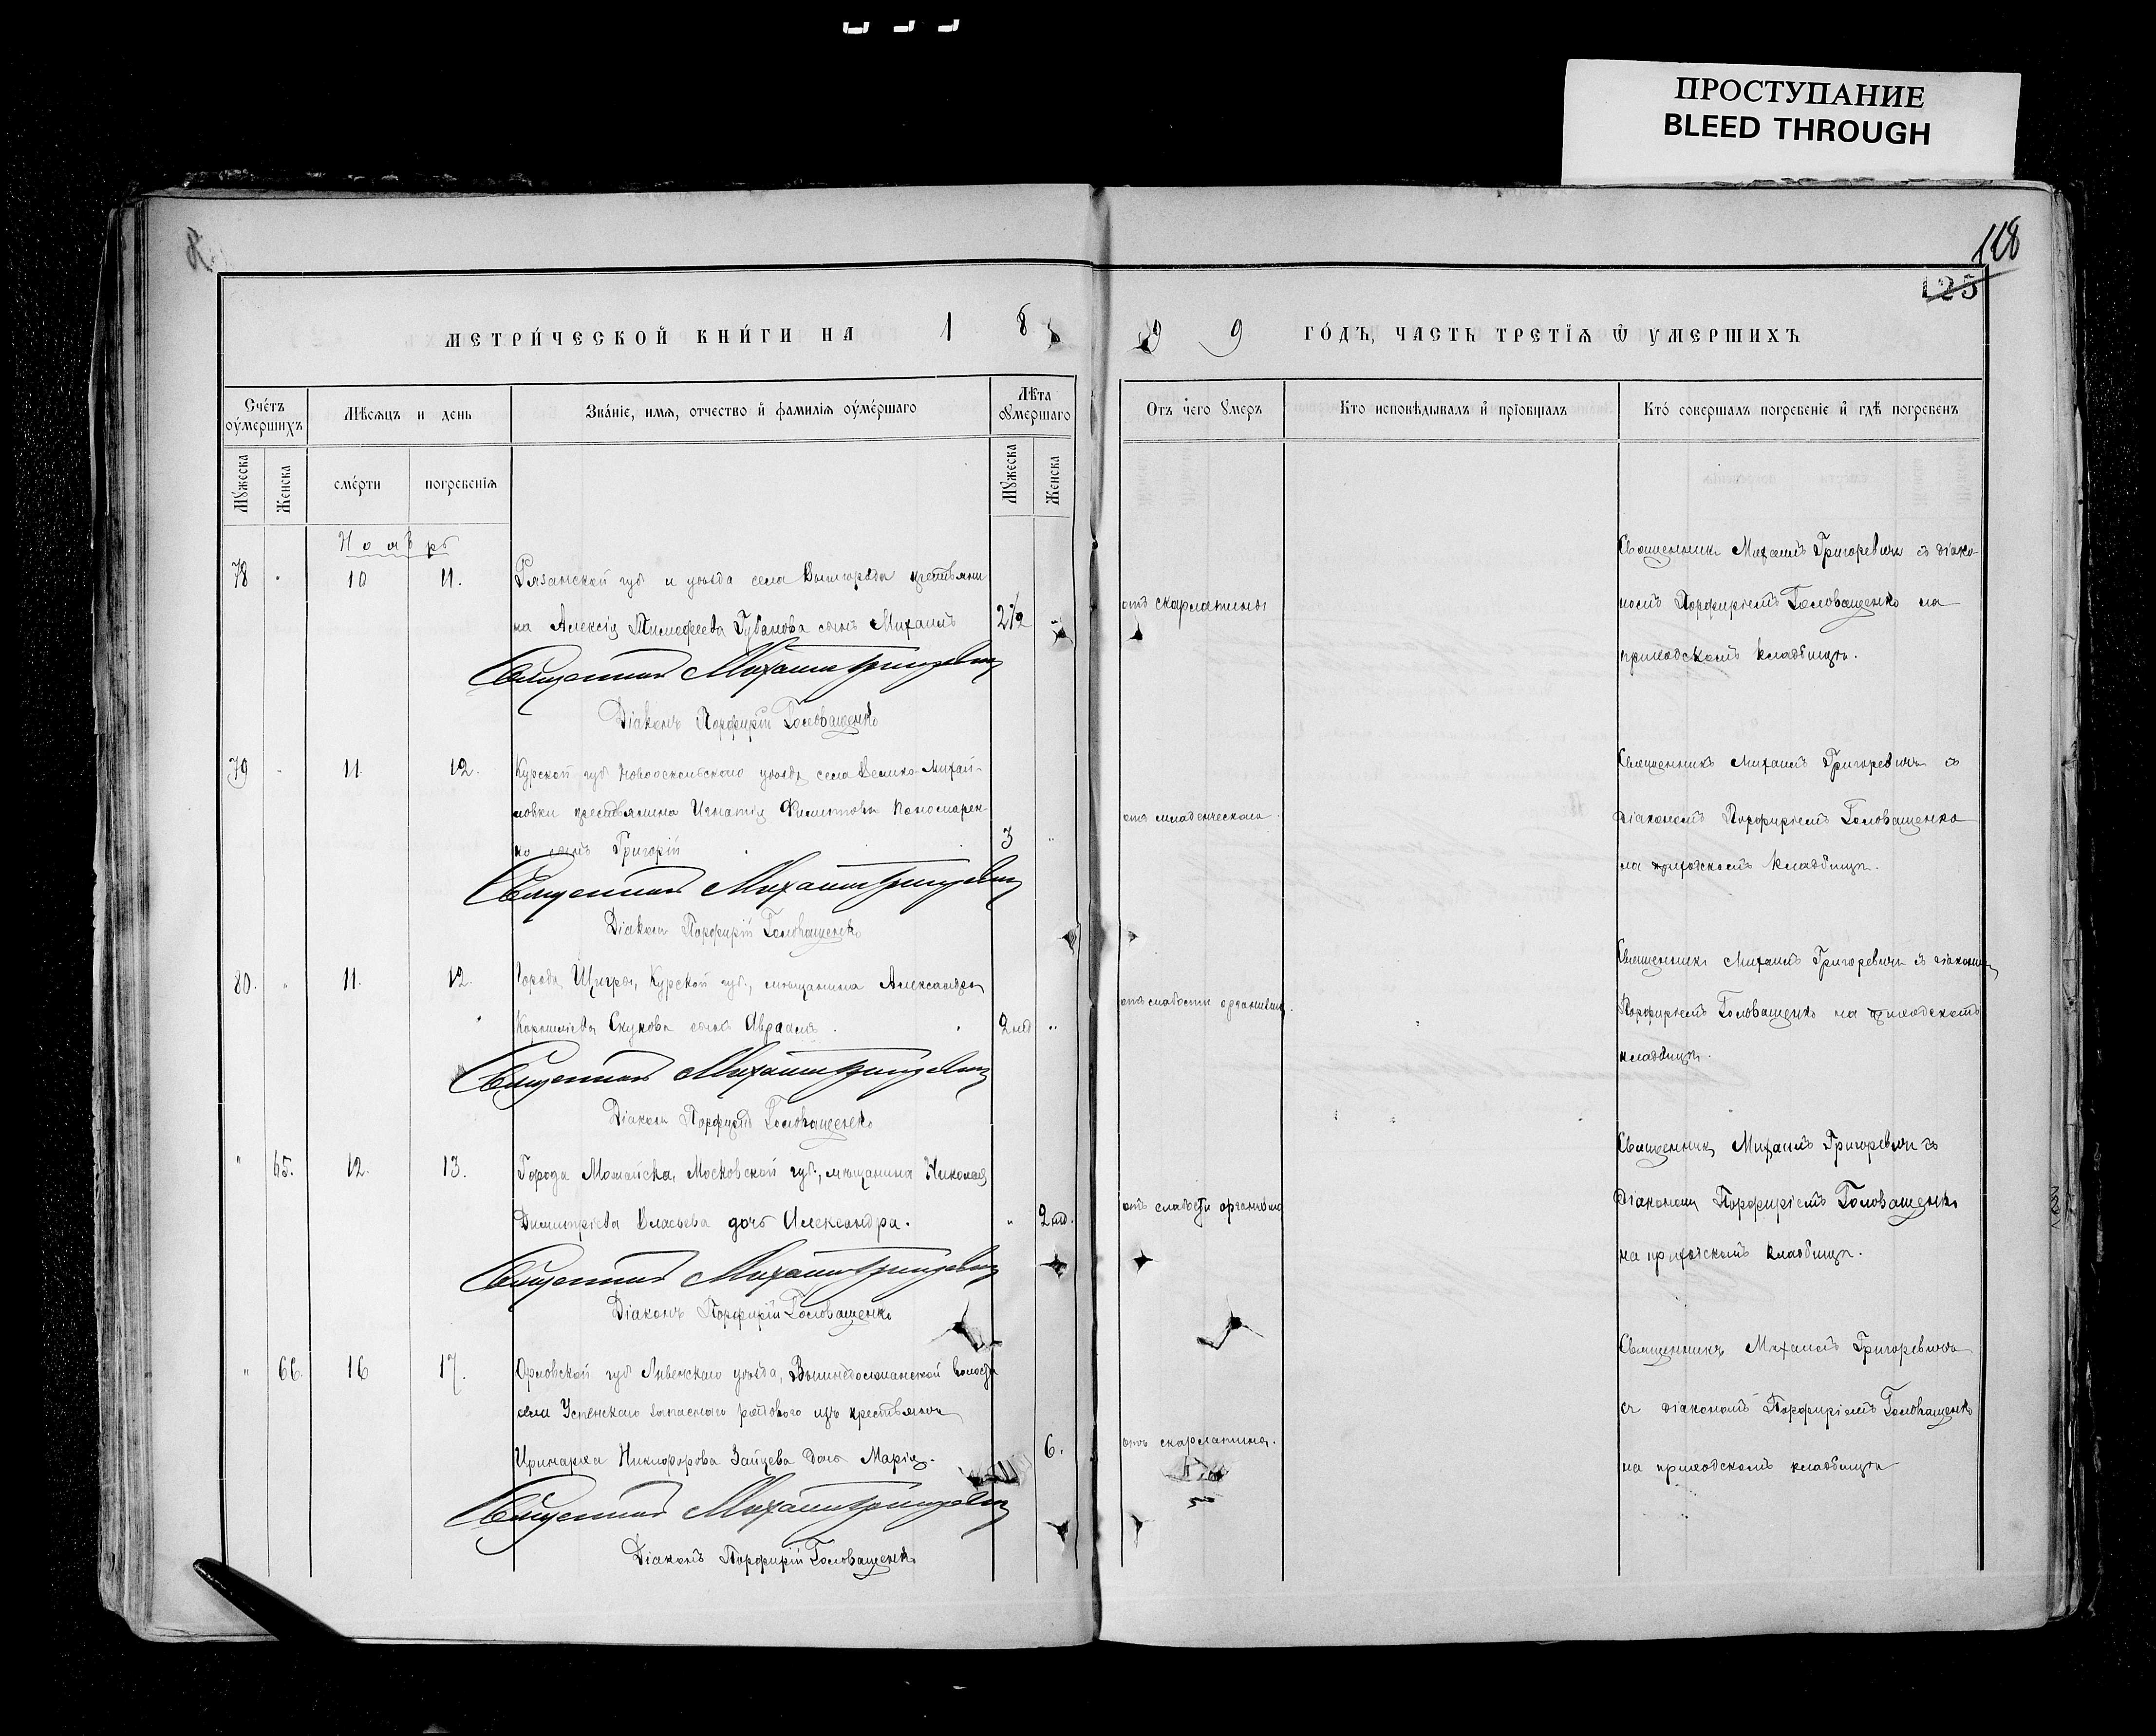 ПРОСТУПАНИЕ
BLEED THROUGH
118
125
МЕТРИ́ЧЕСКОЙ КНИ́ГИ НА 1 8 9 9 ГО́ДЪ, ЧАСТЬ ТРЕТІѦ Ѿ УМЕРШИХЪ
Сче́тъ оу́мершихъ
Мѣсяцъ и день
Зва́ніе, имя, отчество и҆ фамилія оу҆ме́ршаго
Лѣта оумершаго
Отъ чего умеръ
Кто исповѣдывалъ и҆ прїобщалъ
Кто́ совершалъ погребеніе и҆ гдѣ погребенъ
Мужеска
Женска
сме́рти
погребенія
Мужеска
Женска
Ноябрь
78 " 10 11.
Рязанской губ и уѣзда села Вышгорода крестьяни
на Алексія Тимофеева Губанова сынъ Михаилъ
2½ "
отъ скарлатины
Священникъ Михаилъ Григоревичъ съ діако-
номъ Порфиріемъ Головащенко на
приходскомъ кладбищѣ.
Священникъ Михаилъ Григоревичъ
Діаконъ Порфирій Головащенко
79 " 11. 12.
Курской губ Новооскольскаго уѣзда села Велико-Михай-
ловки крестьянина Игнатія Филиппова Пономарен-
ко сынъ Григорій
3 "
отъ младенческаго.
Священникъ Михаилъ Григоревичъ съ
Діакономъ Порфиріемъ Головащенко
на приходскомъ кладбищѣ.
Священникъ Михаилъ Григоревичъ
Діаконъ Порфирій Головащенко
80. " 11. 12.
Города Щигра, Курской губ., мѣщанина Александра
Скукова сынъ Авраамъ.
2 нед "
отъ слабости организма.
Священникъ Михаилъ Григоревичъ съ діакономъ
Порфиріемъ Головащенко на приходскомъ
кладбищѣ.
Священникъ Михаилъ Григоревичъ
Діаконъ Порфирій Головащенко
" 65. 12. 13.
Города Можайска, Московской губ., мѣщанина Николая
Димитріева Власьева дочь Александра.
" 2 нед.
отъ слабости организма
Священникъ Михаилъ Григоревичъ съ
Діакономъ Порфиріемъ Головащенко
на приходскомъ кладбищѣ.
Священникъ Михаилъ Григоревичъ
Діаконъ Порфирій Головащенко
" 66. 16 17.
Орловской губ Ливенскаго уѣзда, волости
села Успенскаго запаснаго рядового изъ крестьянъ
Иринарха Никифорова Зайцева дочь Марія.
6.
отъ скарлатины.
Священникъ Михаилъ Григоревичъ
съ діакономъ Порфиріемъ Головащенко
на приходскомъ кладбищѣ
Священникъ Михаилъ Григоревичъ
Діаконъ Порфирій Головащенко